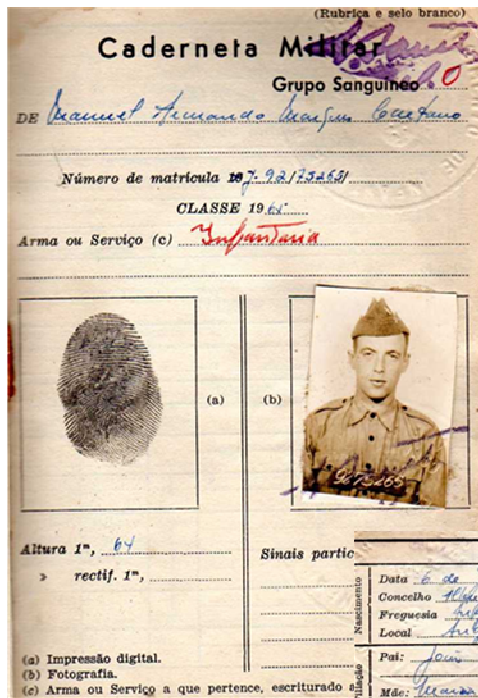 (Rubrica e selo branco)
Caderneta Militar
Grupo Sanguíneo O
DE Manuel Armando Marques Caetano
Número de matrícula
CLASSE 1965
Arma ou Serviço (c) Infantaria
(a)
(b)
9275265
Altura 1m, 64
» rectif. 1m,
Sinais partic
Nascimento
Data 6 de
Concelho
Freguesia
Local
Pai: João
Mãe: Maria
(a) Impressão digital.
(b) Fotografia.
(c) Arma ou Serviço a que pertence, escriturado a